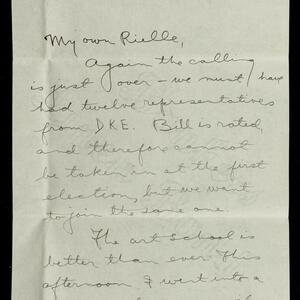 My own Rielle,
Again the calling
is just over – we must have
had twelve representatives
from DKE. Bill is rated,
and therefore cannot
be taken in at the first
election, but we want
to join the same one.
The art school is
better than ever. This
afternoon I went into a